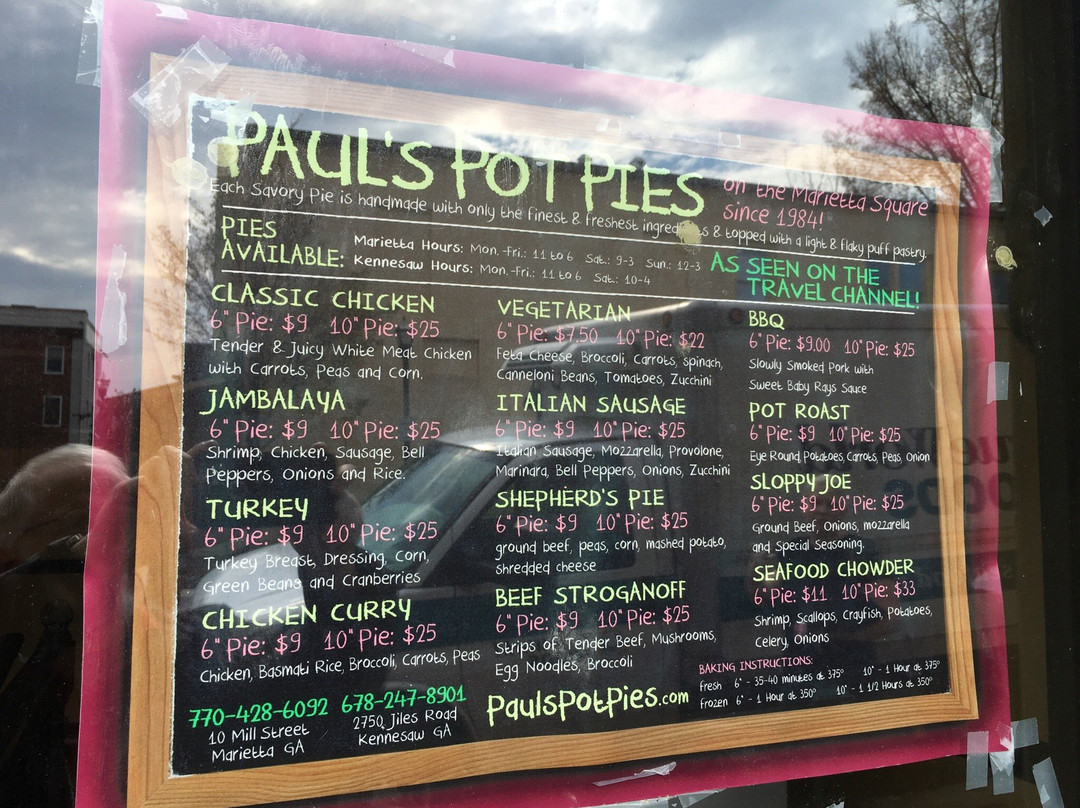 PAUL'S POT PIES
on the Marietta Square
since 1984!
Each Savory Pie is handmade with only the finest & freshest ingredients & topped with a light & flaky puff pastry.
PIES
AVAILABLE:
Marietta Hours: Mon.-Fri.: 11 to 6 Sat.: 9-3 Sun.: 12-3
Kennesaw Hours: Mon.-Fri.: 11 to 6 Sat.: 10-4
AS SEEN ON THE
TRAVEL CHANNEL!
CLASSIC CHICKEN
6" Pie: $9 10" Pie: $25
Tender & Juicy White Meat Chicken
with Carrots, Peas and Corn.
JAMBALAYA
6" Pie: $9 10" Pie: $25
Shrimp, Chicken, Sausage, Bell
Peppers, Onions and Rice.
TURKEY
6" Pie: $9 10" Pie: $25
Turkey Breast, Dressing, Corn,
Green Beans and Cranberries
CHICKEN CURRY
6" Pie: $9 10" Pie: $25
Chicken, Basmati Rice, Broccoli, Carrots, Peas
VEGETARIAN
6" Pie: $7.50 10" Pie: $22
Feta Cheese, Broccoli, Carrots, spinach,
Canneloni Beans, Tomatoes, Zucchini
ITALIAN SAUSAGE
6" Pie: $9 10" Pie: $25
Italian Sausage, Mozzarella, Provolone,
Marinara, Bell Peppers, Onions, Zucchini
SHEPHERD'S PIE
6" Pie: $9 10" Pie: $25
ground beef, peas, corn, mashed potato,
shredded cheese
BEEF STROGANOFF
6" Pie: $9 10" Pie: $25
Strips of Tender Beef, Mushrooms,
Egg Noodles, Broccoli
BBQ
6" Pie: $9.00 10" Pie: $25
Slowly Smoked Pork with
Sweet Baby Rays Sauce
POT ROAST
6" Pie: $9 10" Pie: $25
Eye Round, Potatoes, Carrots, Peas, Onion
SLOPPY JOE
6" Pie: $9 10" Pie: $25
Ground Beef, Onions, mozzarella
and Special Seasoning.
SEAFOOD CHOWDER
6" Pie: $11 10" Pie: $33
Shrimp, Scallops, Crayfish, Potatoes,
Celery, Onions
770-428-6092
10 Mill Street
Marietta GA
678-247-8901
2750 Jiles Road
Kennesaw GA
PaulsPotPies.com
BAKING INSTRUCTIONS:
fresh 6" - 35-40 minutes at 375° 10" - 1 Hour at 375°
frozen 6" - 1 Hour at 350° 10" - 1 1/2 Hours at 350°